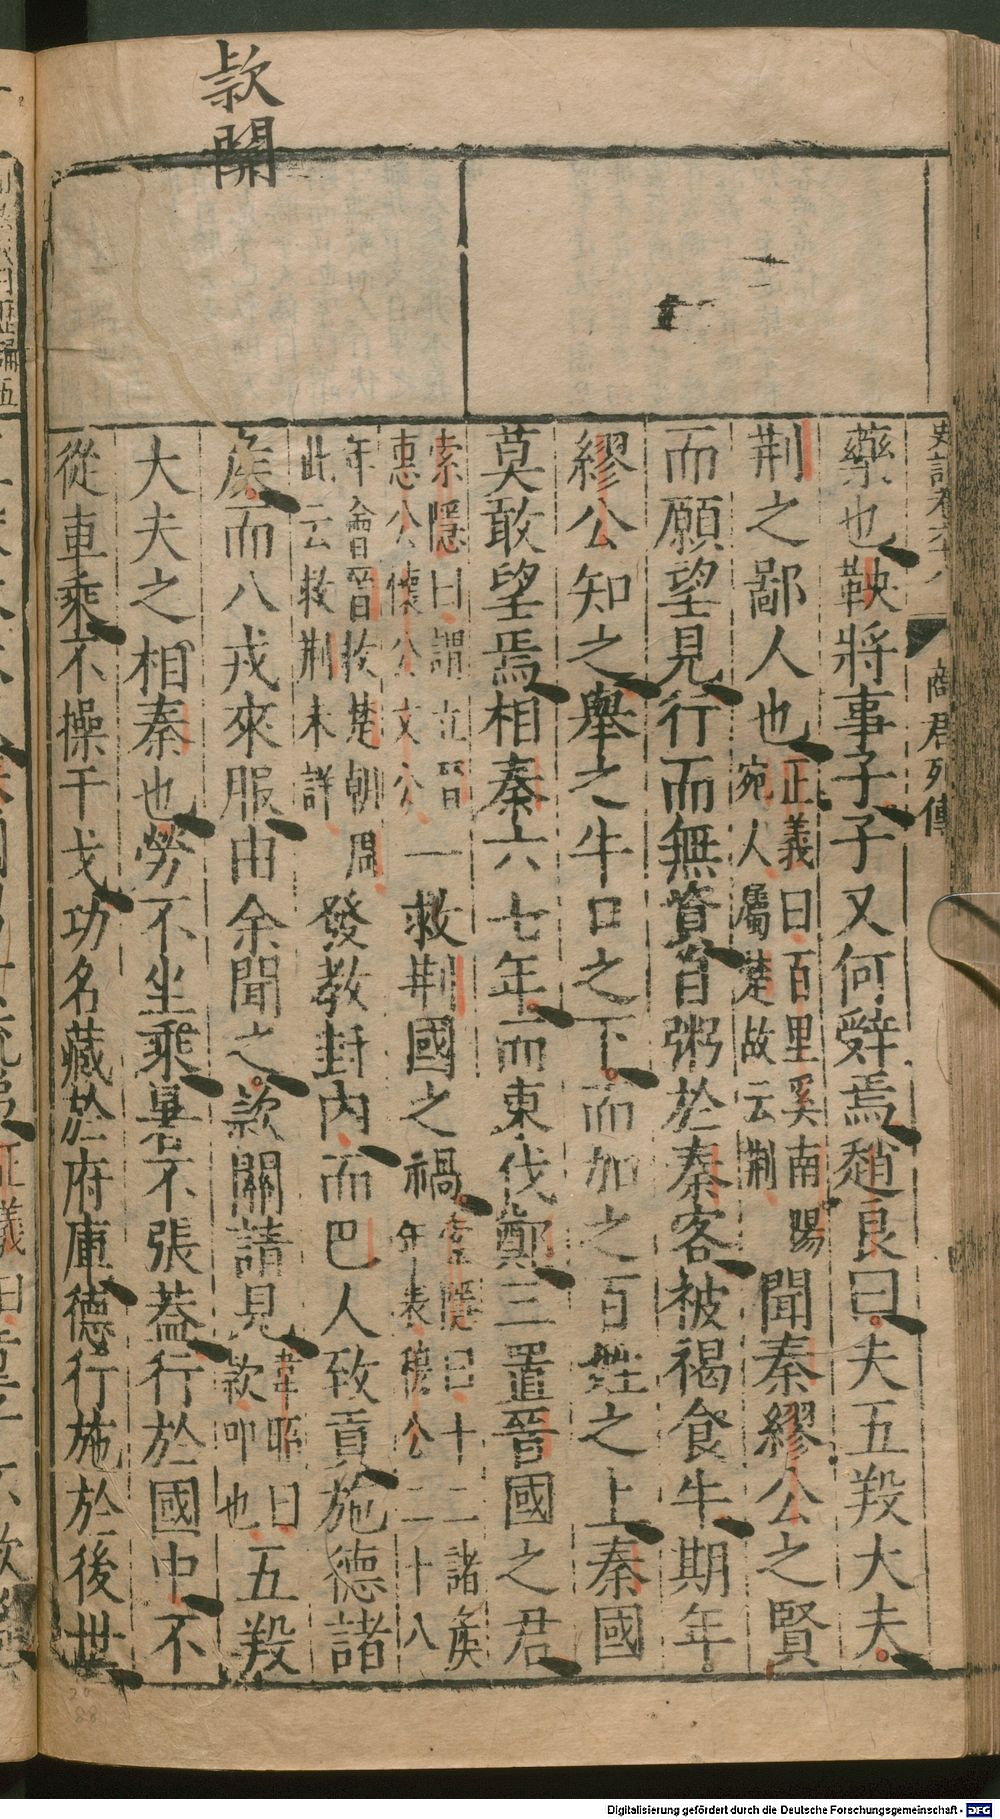 款關
史記卷六十八
商君列傳
藥也鞅將事子子又何辭焉趙良曰夫五羖大夫
荆之鄙人也正義曰百里奚南陽宛人屬楚故云荆聞秦繆公之賢
而願望見行而無資自粥於秦客被褐食牛期年
繆公知之舉之牛口之下而加之百姓之上秦國
莫敢望焉相秦六七年而東伐鄭三置晉國之君
索隱曰謂立晉惠公懷公文公一救荆國之禍索隱曰十二諸侯年表穆公二十八
年會晉救楚朝周此云救荆未詳發教封內而巴人致貢施德諸
侯而八戎來服由余聞之款關請見韋昭曰款叩也五羖
大夫之相秦也勞不坐乘暑不張蓋行於國中不
從車乘不操干戈功名藏於府庫德行施於後世
Digitalisierung gefördert durch die Deutsche Forschungsgemeinschaft - DFG